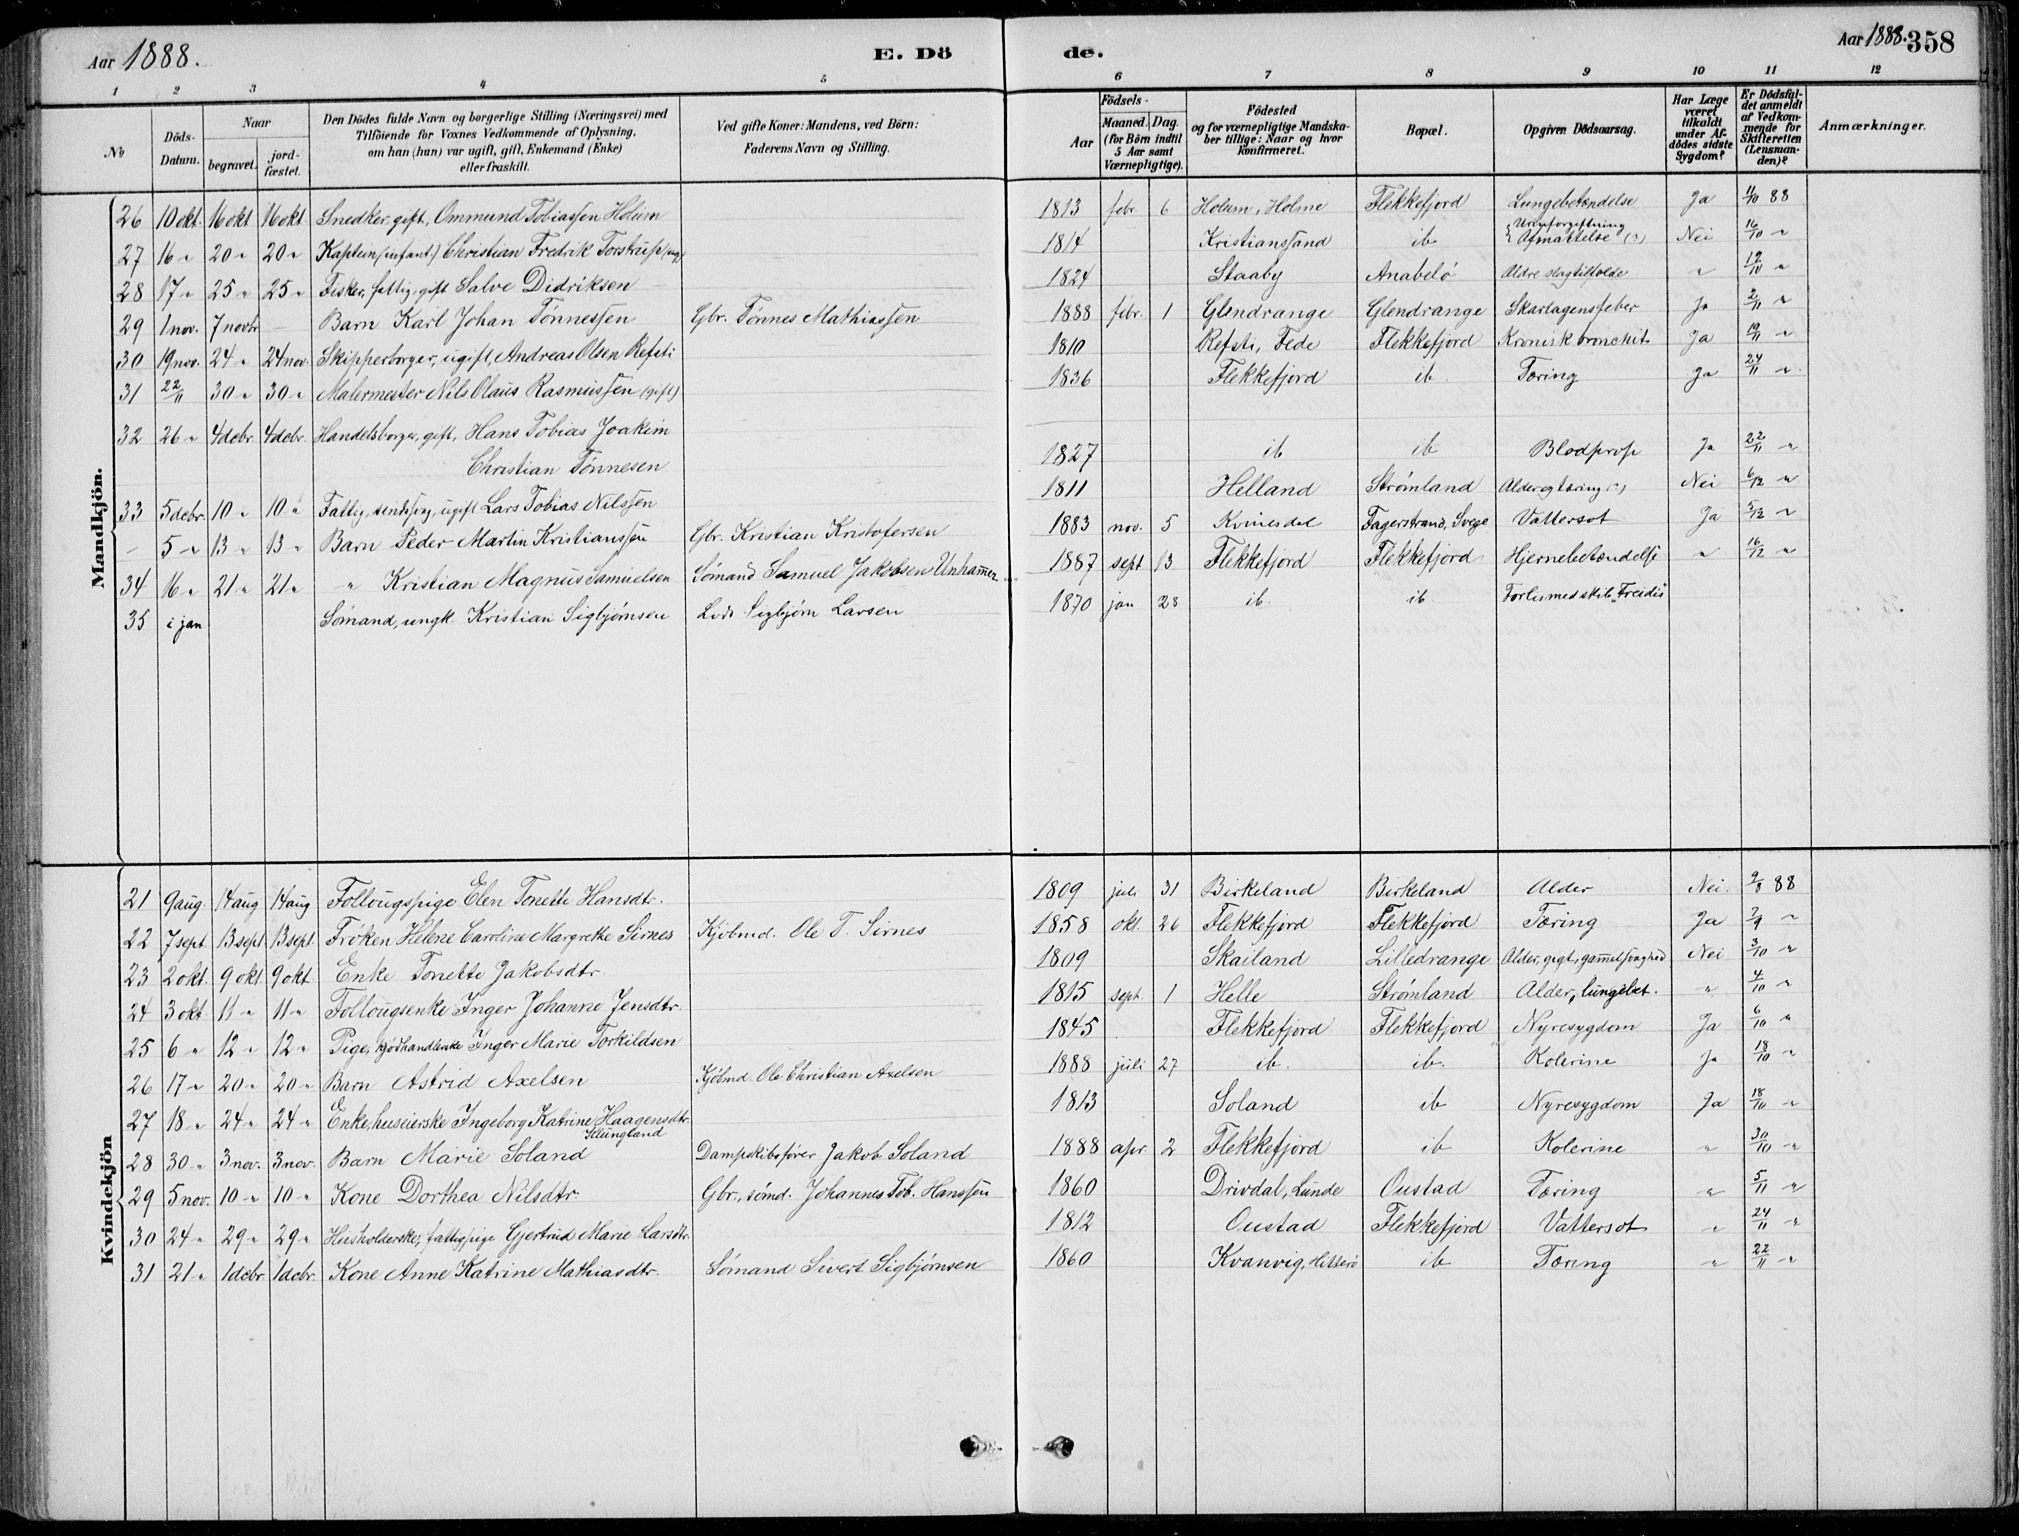 Aar 1888. E. Dö de. Aar 1888. 358
1 2 3 4 5 6 7 8 9 10 11 12
No Döds-Datum. Naar begravet. jord-fæstet. Den Dödes fulde Navn og borgerlige Stilling (Næringsvei) med Tilföiende for Voxnes Vedkommende af Oplysning, om han (hun) var ugift, gift, Enkemand (Enke) eller fraskilt. Ved gifte Koner: Mandens, ved Börn: Faderens Navn og Stilling. Födsels- Aar Maaned. Dag. (for Börn indtil 5 Aar samt Værnepligtige). Födested og for værnepligtige Mandskaber tillige: Naar og hvor konfirmeret. Bopæl. Opgiven Dödsaarsag. Har Læge været tilkaldt under Afdödes sidste Sygdom? Er Dödsfaldet anmeldt af Vedkommende for Skifteretten (Lensmanden)? Anmærkninger.
Mandkjön.
26 10 okt. 16 okt 16 okt. Snedker, gift, Ommund Tobiassen Holum 1813 febr. 6 Holum, Holme Flekkefjord Lungebetændelse Ja 11/10 88
27 16 " 20 " 20 " Kaptein (infant.) Christian Fredrik Torstrup (ug.) 1814 Kristianssand ib Urinforgiftning Afmattelse (?) Nei 16/10 "
28 17 " 25 " 25 " Fisker, fattig, gift Salve Didriksen 1824 Staaby Anabelö Aldre slagtilfælde " 19/10 "
29 1 nov. 7 novbr — Barn Karl Johan Tönnessen Gbr. Tönnes Mathiassen 1888 febr. 1 Glendrange Glendrange Skarlagensfeber Ja 2/11 "
30 19 nov. 24 " 24 nov. Skipperborger, ugift, Andreas Olsen Refsti 1810 Refsti, Fede Flekkefjord Kronisk bronchit Ja 19/11 "
31 22/11 30 " 30 " Malermester Nils Olaus Rasmussen (gift) 1836 Flekkefjord ib. Tæring Ja 24/11 "
32 26 " 4 debr. 4 debr. Handelsborger, gift, Hans Tobias Joakim
Christian Tönnesen 1827 ib ib Blodprop Ja 22/11 "
33 5 debr. 10 " 10 " Fattig, ugift Lars Tobias Nilssen 1811 Helland Strömland Alder og tæring (?) Nei 6/12 "
— 5 " 13 " 13 " Barn Peder Martin Kristianssen Gbr. Kristian Kristofersen 1883 nov. 5 Kvinesdal Fagerstrand, Svege Vattersot Ja 5/12 "
34 16 " 21 " 21 " " Kristian Magnus Samuelsen Sömand Samuel Jakobsen Unhammer 1887 sept 13 Flekkefjord Flekkefjord Hjernebetændelse " 16/12 "
35 i jan Sömand, ungk. Kristian Sigbjörnsen Lods Sigbjörn Larsen 1870 jan 28 ib. ib. Forlis med skib "Freidis"
Kvindekjön
21 9 aug. 14 aug 14 aug Follougspige Elen Tonette Hansdtr. 1809 juli 31 Birkeland Birkeland Alder Nei. 9/8 88
22 7 sept. 13 sept. 13 sept. Fröken Helene Caroline Margrethe Sirnes Kjöbmd. Ole T. Sirnes 1858 okt. 26 Flekkefjord Flekkefjord Tæring Ja 7/9 "
23 2 okt. 9 okt. 9 okt. Enke Tonette Jakobsdtr. 1809 Skailand Lilledrange Alder, gigt, Nei 3/10 "
24 3 okt 11 " 11 " Follougsenke Inger Johanne Jensdtr. 1815 sept. 1 Helle Strömland Alder, lungebet. " 4/10 "
25 6 " 12 " 12 " Pige, kjödhandlerske Inger Marie Torkildsen 1845 Flekkefjord Flekkefjord Nyresygdom Ja 6/10 "
26 17 " 20 " 20 " Barn Astrid Axelsen Kjöbmd. Ole Christian Axelsen 1888 juli 27 ib. ib. Kolerine Ja 18/10 "
27 18 " 24 " 24 " Enke, huseierske Ingeborg Katrine Haagensdtr.
Klungland 1813 Soland ib Nyresygdom Ja 18/10 "
28 30 " 3 nov. 3 nov. Barn Marie Soland Dampskibsförer Jakob Soland 1888 apr. 2 Flekkefjord ib Kolerine " 30/10 "
29 5 nov. 10 " 10 " Kone Dorthea Nilsdtr. Gbr., sömd. Johannes Tob. Hanssen 1860 Drivdal, Lunde Oustad Tæring " 5/11 "
30 24 " 29 " 29 " Husholderske, fattigpige Gjertrud Marie Larsdtr. 1812 Oustad Flekkefjord Vattersot " 24/11 "
31 21 " 1 debr. 1 debr. Kone Anne Katrine Mathiasdtr. Sömand Sivert Sigbjörnsen 1860 Kvanvig, Hitterö ib Tæring " 22/11 "